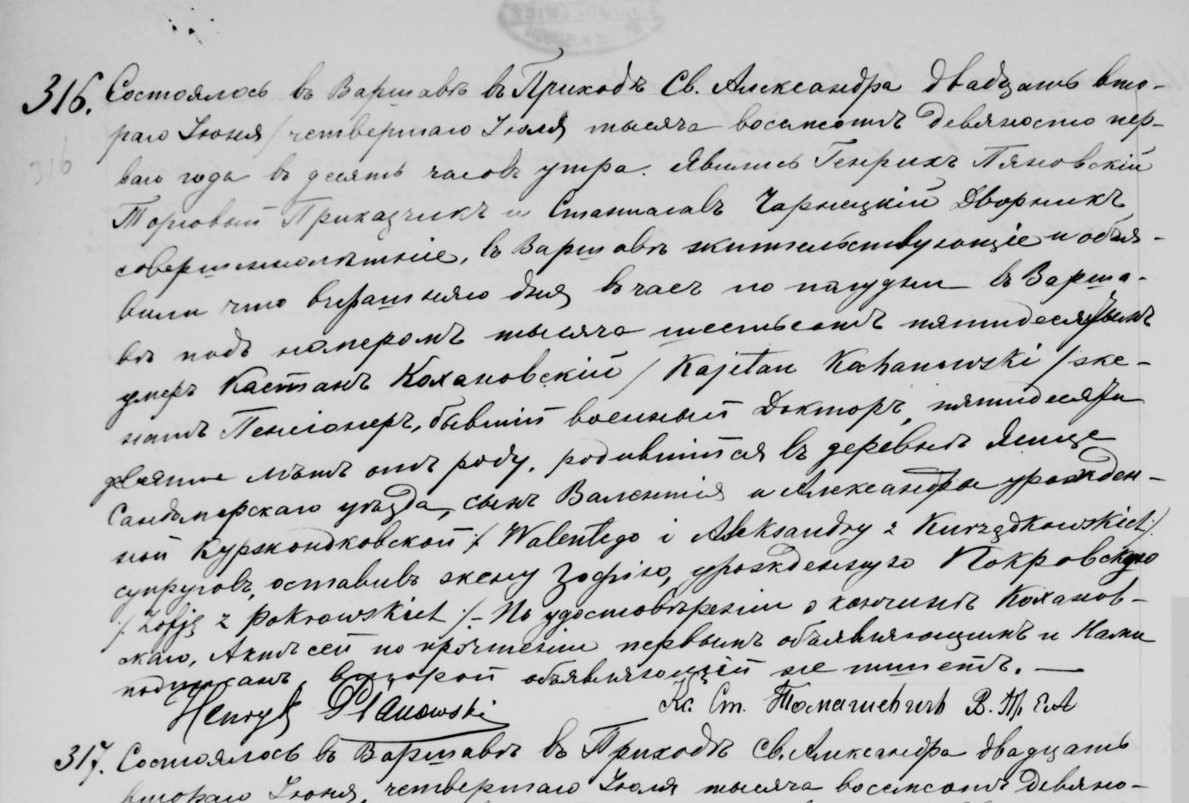 316. Состоялось въ Варшавѣ въ Приходѣ Св. Александра двадцать вто-
316
раго Іюня / четвертаго Іюля тысяча восемсотъ девяносто пер-
ваго года въ десять часовъ утра. Явились Генрихъ Пяновскій
Торговый Приказчикъ и Станиславъ Чарнецкій Дворникъ
совершеннолѣтніе, въ Варшавѣ жительствующіе и объя-
вили что вчерашняго дня въ часъ по полудни въ Варша-
вѣ подъ номеромъ тысяча шестьсотъ пятидесятымъ
умеръ Каетанъ Кохановскій / Kajetan Kochanowski / же-
натъ Пенсіонеръ, бывшій военный Докторъ, пятидесяти
девяти лѣтъ отъ роду, родившійся въ деревнѣ
Сандомирскаго уѣзда, сынъ Валентія и Александры урожден-
ной Куржондковской / Walentego i Aleksandry z Kurządkowskich :/
супруговъ, оставивъ жену Зофію, урожденную Покровскую
/: Zofję z Pokrowskich :/ – По удостовѣреніи о кончинѣ Коханов-
скаго, Актъ сей по прочтеніи первымъ объявляющимъ и Нами
подписанъ, второй объявляющій не пишетъ. —
Henryk Pianowski Кс. Ст. Томашевичъ
317. Состоялось въ Варшавѣ въ Приходѣ Св. Александра двадцать
втораго Іюня, четвертаго Іюля тысяча восемсотъ девяно-